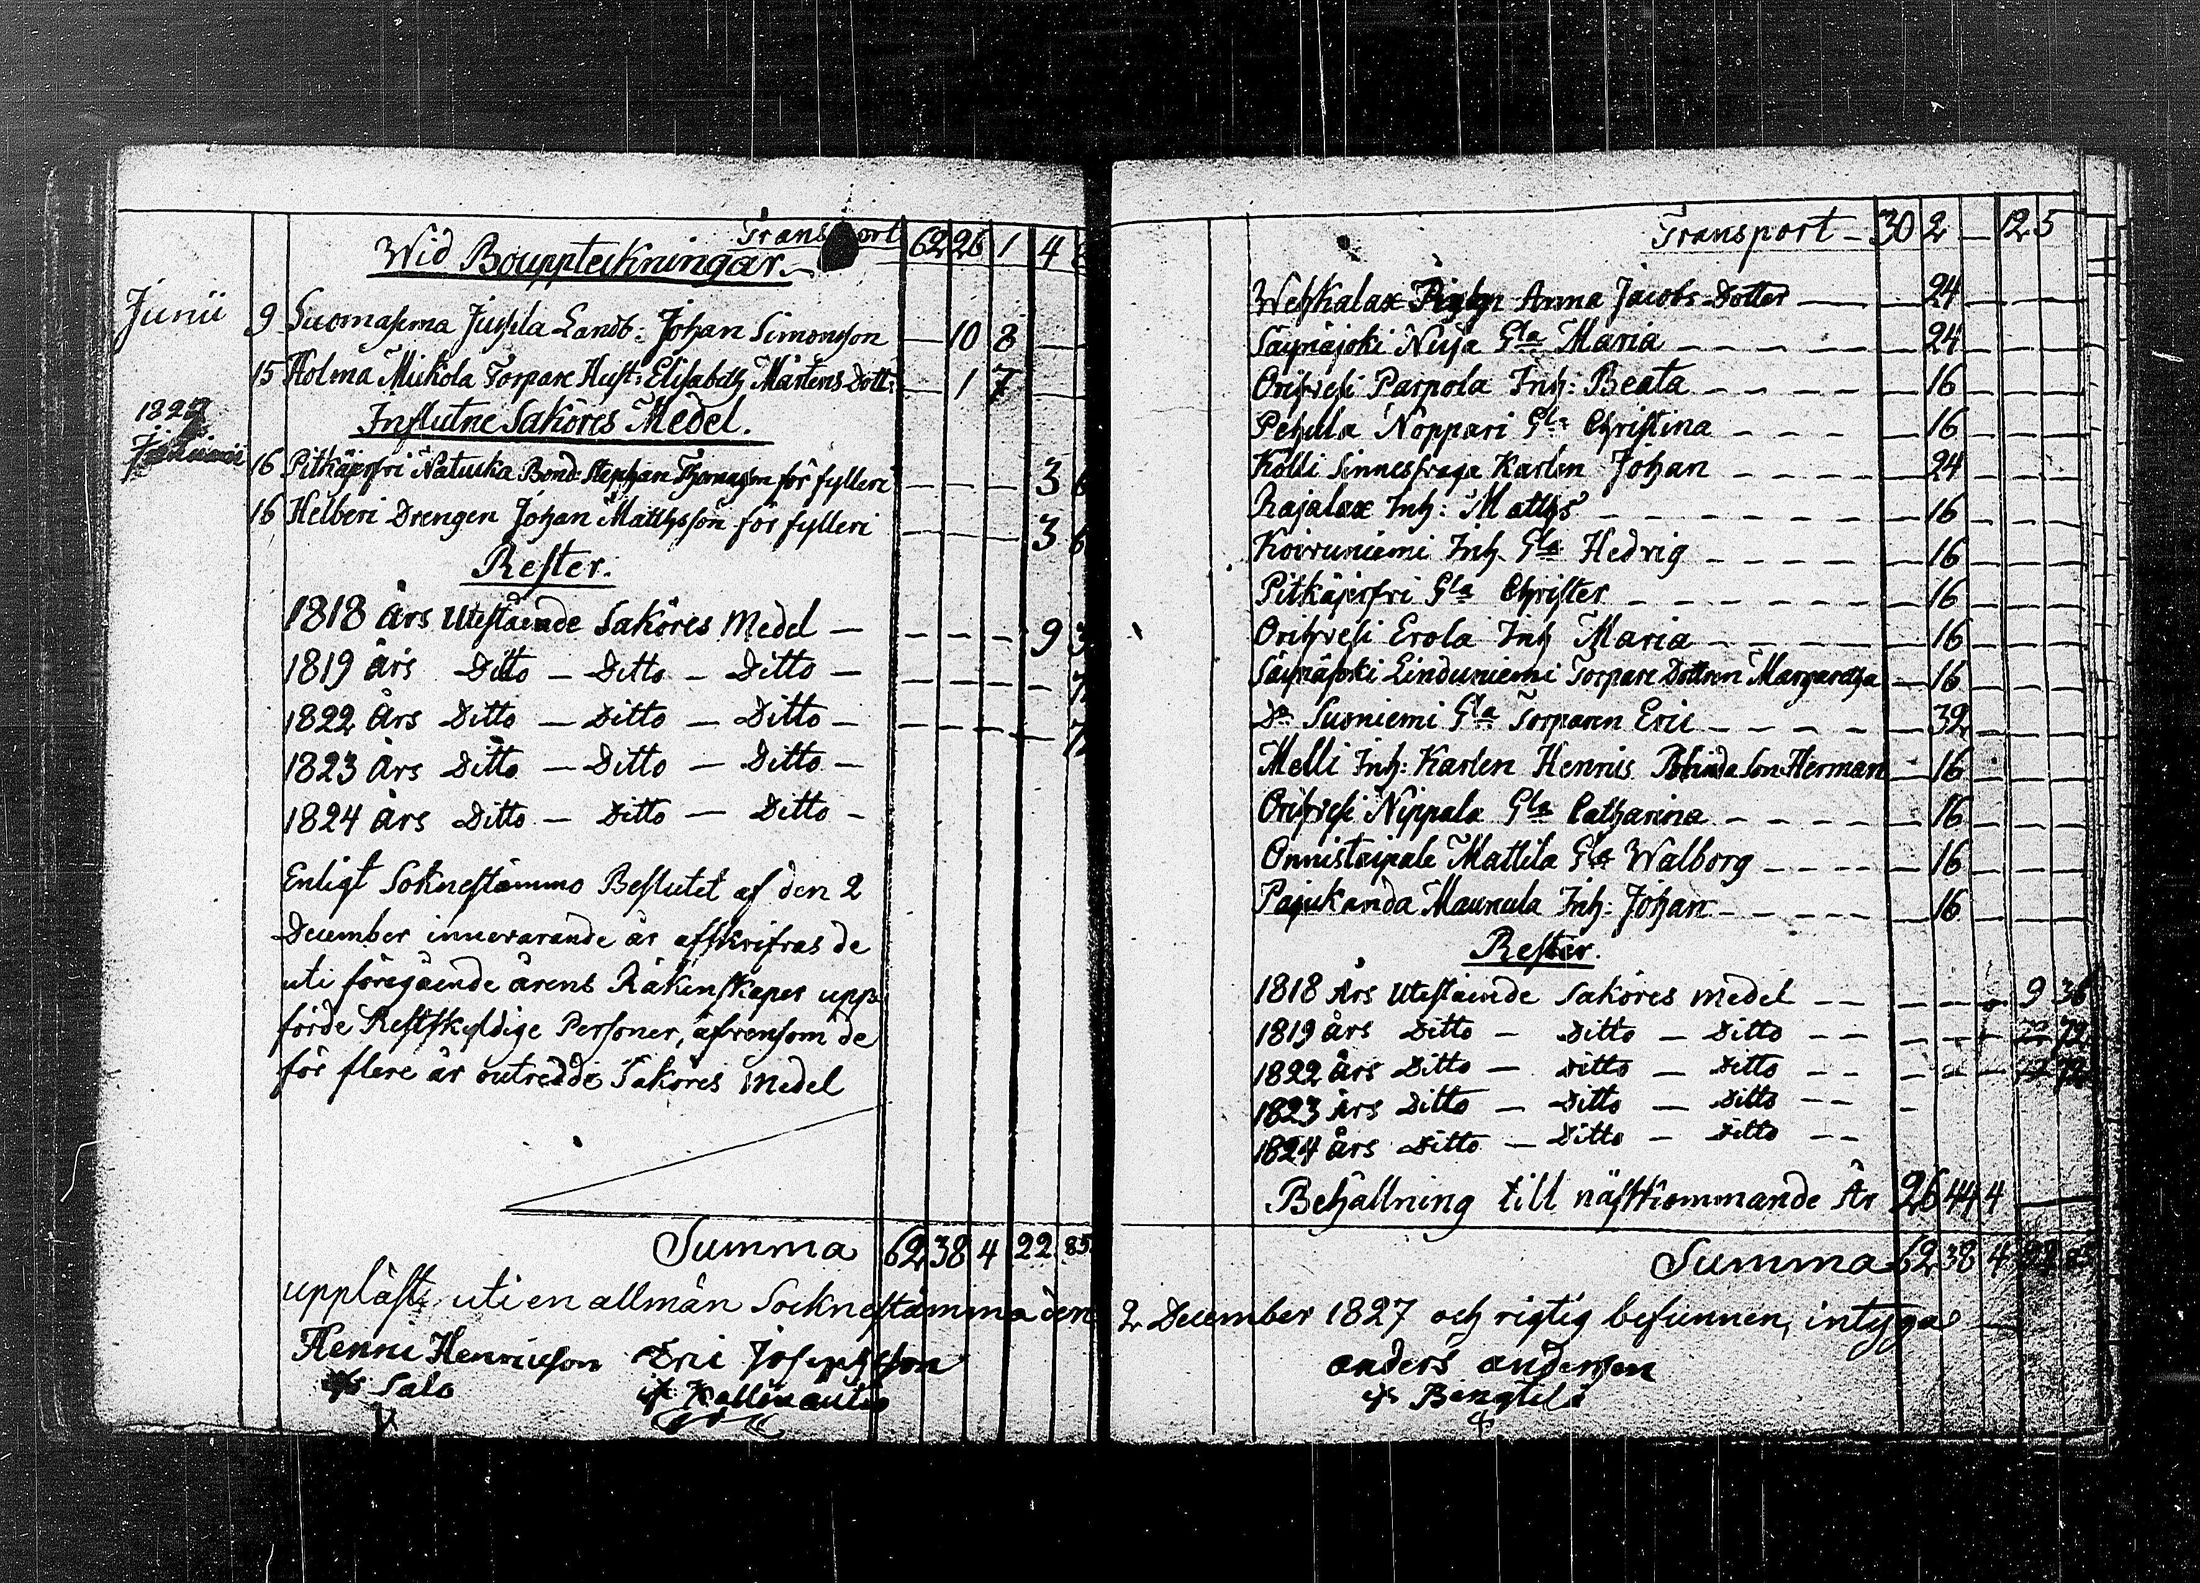 Transport 62 26 1 4
Wid Bouppteckningar.
Junii 9 Suomasema Jussila Landb: Johan Simonsson — 10 8 —
15 Holma Mickola Torpare Hust: Elisabeth Mårtens Dott: — 1 7
1827
Influtne Saköres Medel.
16 Pitkäjerfvi Natuka Bond: Stephan Thomasson för fylleri — — — 3 6
16 Helberi Drengen Johan Matthsson för fylleri — — — 3 6
Rester.
1818 Års Utestående Saköres Medel — — — — 9 3
1819 Års Ditto — Ditto — Ditto — — — — — 7
1822 Års Ditto — Ditto — Ditto — — — — — 7
1823 Års Ditto — Ditto — Ditto —
1824 Års Ditto — Ditto — Ditto —
Enligt Soknestämmo Beslutet af den 2
December innevarande år affskrifvas de
uti föregående årens Räkenskaper upp-
förde Restskyldige Personer, äfvensom de
för flere år outredde Saköres medel
Summa 62 38 4 22 85
uppläst, uti en allmän Socknestämma den
Henric Henricsson Eric Josephsson
Salo Kallinautio
Transport — 30 2 — 12 5
Weskalax Anna Jacobs Dotter — 24
Säynäjoki Nisja Gla Maria — — — — — 24
Orihvesi Parpola Inh: Beata — — — — 16
Pehula Noppari Gla Christina — — — 16
Kolli Sinnessvaga Karlen Johan — — — — 24
Rajalax Inh: Matths — — — — — — — 16
Koivuniemi Inh Gla Hedvig — — — — — 16
Pitkäjerfvi Gla Christer — — — — — — — 16
Orihvesi Erola Inh Maria — — — — 16
Säynäjoki Linduniemi Torpare Dottren Margaretha — 16
Do Susniemi Gla Torparen Eric — — — — — 32
Melli Inh: Karlen Henrics Blinda Son Herman 16
Orihvesi Nippala Gla Catharina — — — — — 16
Onnistaipale Mattila Gla Walborg — — — — 16
Pajukanda Maunula Inh: Johan — — — — — 16
Rester.
1818 Års Utestående Saköres medel — — — — — 9 36
1819 års Ditto — Ditto — Ditto — — — — — 72
1822 Års Ditto — Ditto — Ditto — — — — — 72
1823 Års Ditto — Ditto — Ditto — — —
1824 Års Ditto — Ditto — Ditto — —
Behållning till nästkommande År 26 44 4
Summa 62 38 4 22 85
2 December 1827 och rigtig befunnen, intyga
anders andersen
Bengtila